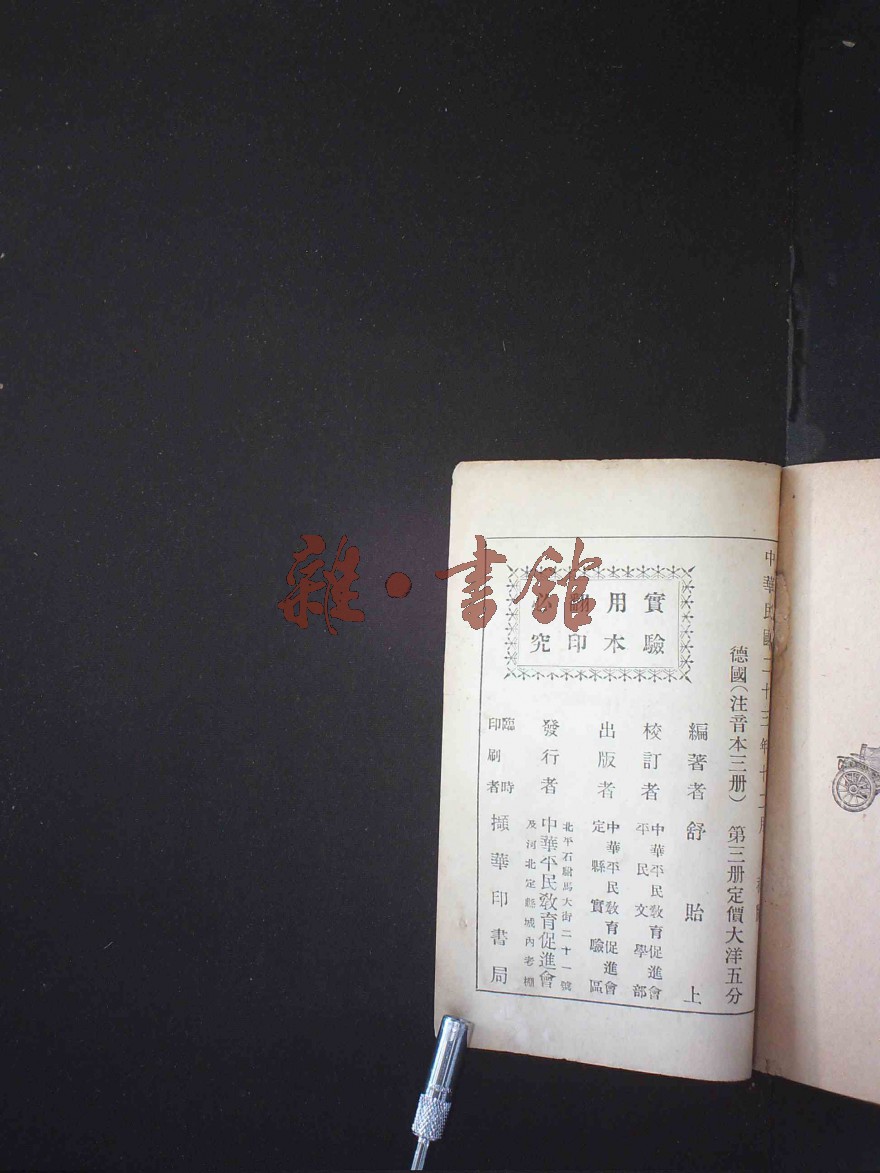 中華民國二十三年十二月
德國(注音本三册) 第三册定價大洋五分
實驗
用本
翻印
必究
編著者 舒貽上
校訂者 中華平民教育促進會
平民文學部
出版者 中華平民教育促進會
定縣實驗區
發行者 中華平民教育促進會
北平石駙馬大街二十一號
及河北定縣城內老棚
臨時印刷者 擷華印書局
雜·書館